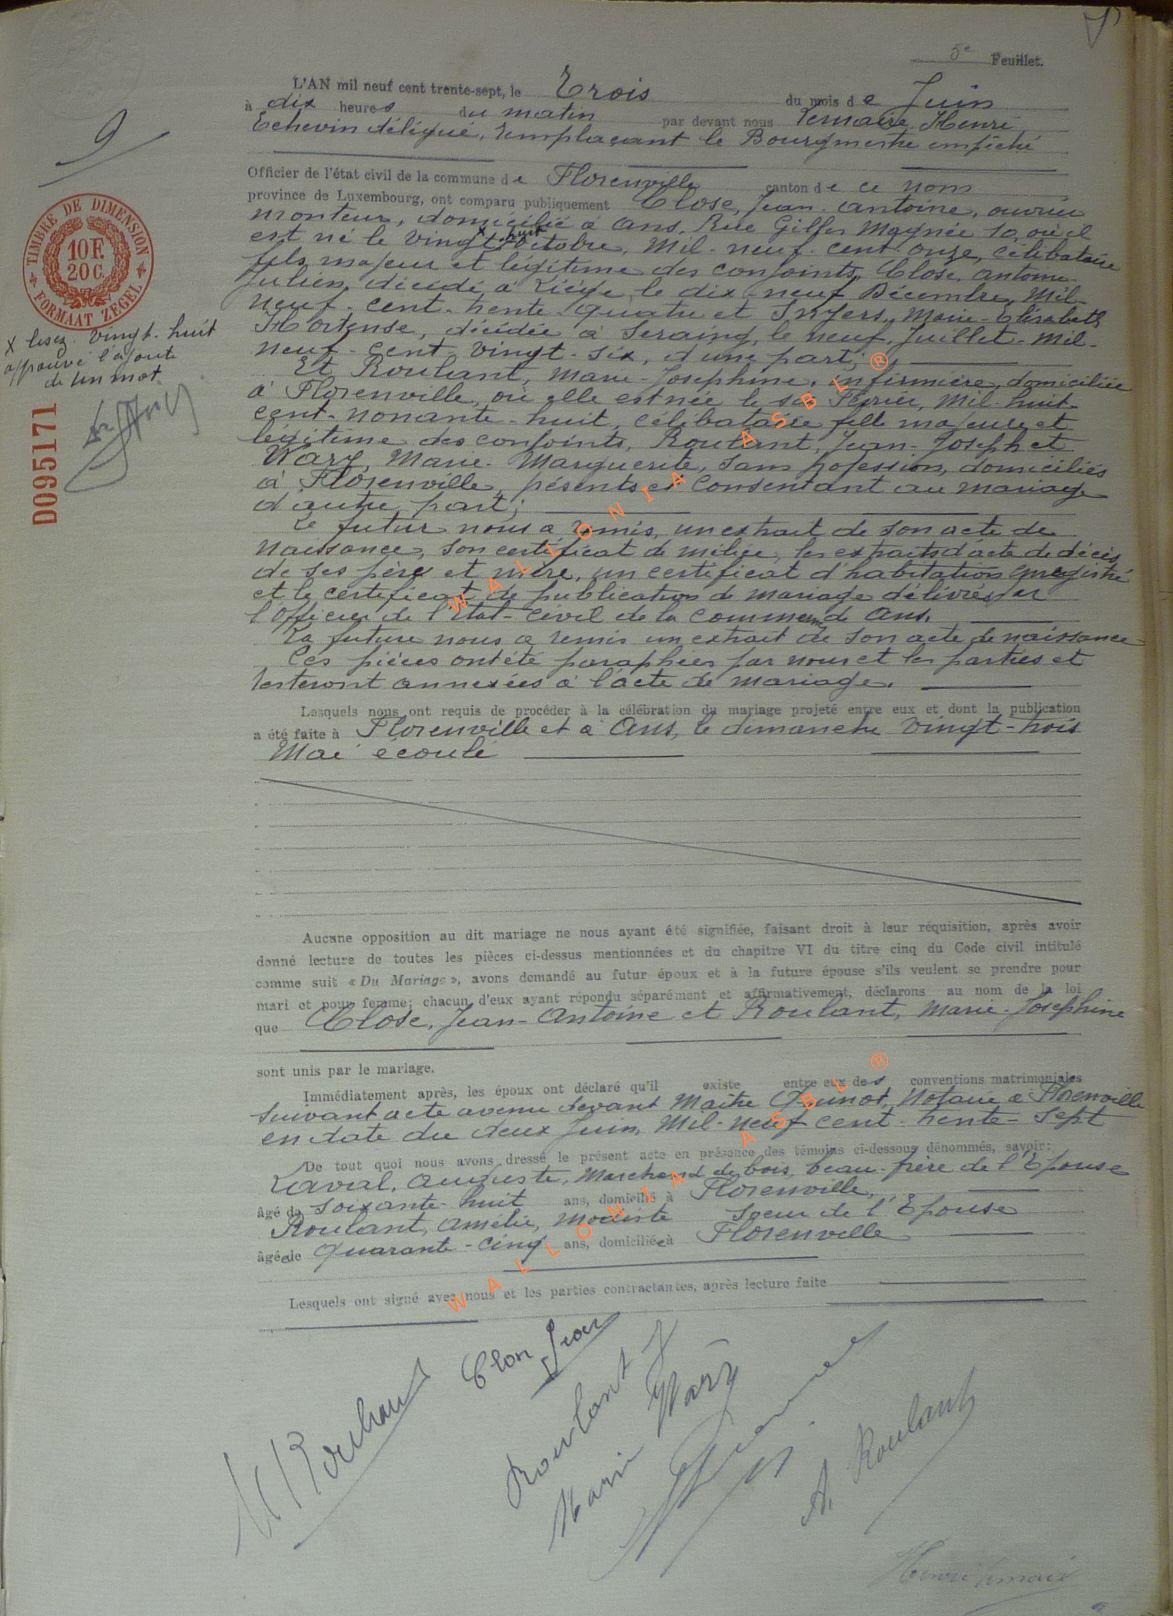 5e Feuillet.
L'AN mil neuf cent trente-sept, le Trois du mois de Juin
à dix heures du matin par devant nous Lemaire Henri
Echevin délégué, remplaçant le Bourgmestre empêché
Officier de l'état civil de la commune de Florenville canton de ce nom
province de Luxembourg, ont comparu publiquement Close, Jean-Antoine, ouvrier
monteur, domicilié à Ans, Rue Gilles Magnée 10, où il
est né le vingt x huit octobre, Mil-neuf-cent-onze, célibataire
fils majeur et légitime des conjoints, Close, Antoine
Julien, décédé à Liège, le dix-neuf Décembre, Mil-
neuf-cent-trente-quatre et Marie-Elisabeth
Hortense, décédée à Seraing, le neuf Juillet-Mil-
neuf-cent-vingt-six, d'une part;
Et Roulant, Marie-Josephine, infirmière, domiciliée
à Florenville, où elle est née le six Février, Mil-huit-
cent-nonante-huit, célibataire fille majeure et
légitime des conjoints, Roulant, Jean-Joseph et
Wary, Marie-Marguerite, sans profession, domiciliés
à Florenville, présents et consentant au mariage
d'autre part;
Le futur nous a remis, un extrait de son acte de
naissance, son certificat de milice, les extraits d'acte de décès
de ses père et mère, un certificat d'habitation enregistré
et le certificat de publication de mariage délivrés par
l'Officier de l'Etat-Civil de la commune d'Ans.
La future nous a remis un extrait de son acte de naissance
Ces pièces ont été paraphées par nous et les parties et
resteront annexées à l'acte de mariage.
Lesquels nous ont requis de procéder à la célébration du mariage projeté entre eux et dont la publication
a été faite à Florenville et à Ans, le dimanche vingt-trois
Mai écoulé
Aucune opposition au dit mariage ne nous ayant été signifiée, faisant droit à leur réquisition, après avoir
donné lecture de toutes les pièces ci-dessus mentionnées et du chapitre VI du titre cinq du Code civil intitulé
comme suit « Du Mariage », avons demandé au futur époux et à la future épouse s'ils veulent se prendre pour
mari et pour femme; chacun d'eux ayant répondu séparément et affirmativement, déclarons au nom de la loi
que Close, Jean-Antoine et Roulant, Marie-Josephine
sont unis par le mariage.
Immédiatement après, les époux ont déclaré qu'il existe entre eux des conventions matrimoniales
suivant acte avenu devant Maître Notaire à Florenville
en date du deux Juin, Mil-neuf cent-trente-Sept
De tout quoi nous avons dressé le présent acte en présence des témoins ci-dessous dénommés, savoir:
Laval, Auguste, Marchand de bois, beau-frère de l'Epouse
âgé de soixante-huit ans, domicilié à Florenville,
Roulant, Amélie, modiste soeur de l'Epouse
âgée de quarante-cinq ans, domiciliée à Florenville
Lesquels ont signé avec nous et les parties contractantes, après lecture faite
M Roulant
Close Jean
Roulant J
Marie Wary
A. Roulant
Henri Lemaire
9
TIMBRE DE DIMENSION
10F.
20C.
FORMAAT ZEGEL
x lisez vingt-huit
approuvé l'ajout
de un mot
D095171
WALLONIA ASBL ®
WALLONIA ASBL ®